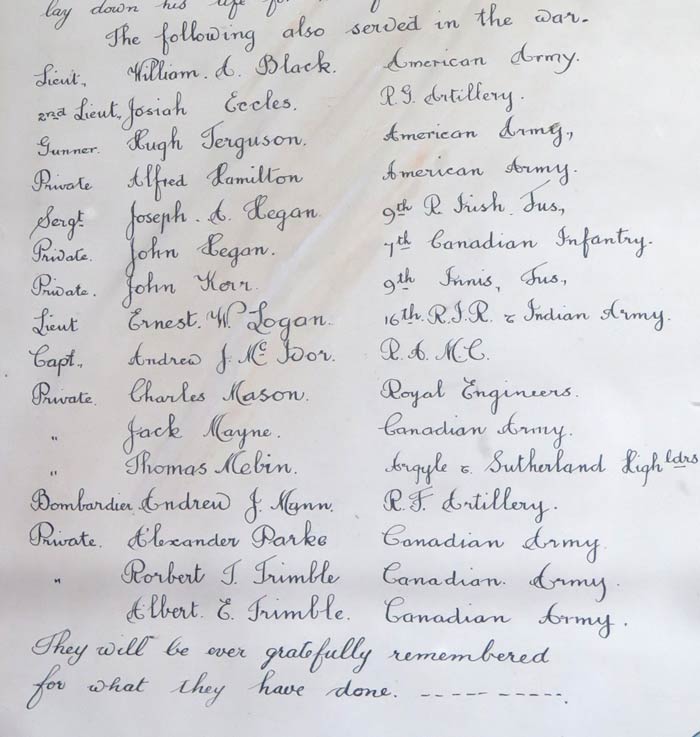 lay down his life for
The following also served in the war.
Lieut., William. A. Black. American Army.
2nd Lieut., Josiah Eccles. R.G. Artillery.
Gunner. Hugh Ferguson. American Army,
Private Alfred Hamilton American Army.
Sergt. Joseph. A. Hegan. 9th R. Irish. Fus,
Private. John Hegan. 7th Canadian Infantry.
Private. John Kerr. 9th Innis, Fus,
Lieut Ernest. W. Logan. 16th. R.I.R. & Indian Army.
Capt., Andrew J. Mc Ivor. R.A.M.C.
Private. Charles Mason. Royal Engineers.
" Jack Mayne. Canadian Army.
" Thomas Mebin. Argyle & Sutherland Highldrs
Bombardier. Andrew J. Mann. R.F. Artillery.
Private. Alexander Parke Canadian Army
" Rorbert T. Trimble Canadian. Army.
Albert. E. Trimble. Canadian Army.
They will be ever gratefully remembered
for what they have done. -----------.